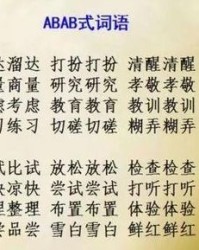 ABAB式词语
达溜达 打扮打扮 清醒清醒
量商量 研究研究 孝敬孝敬
虑考虑 教育教育 教训教训
习练习 切磋切磋 糊弄糊弄
试比试 放松放松 检查检查
快凉快 尝试尝试 打听打听
理整理 布置布置 体验体验
尝品尝 雪白雪白 鲜红鲜红